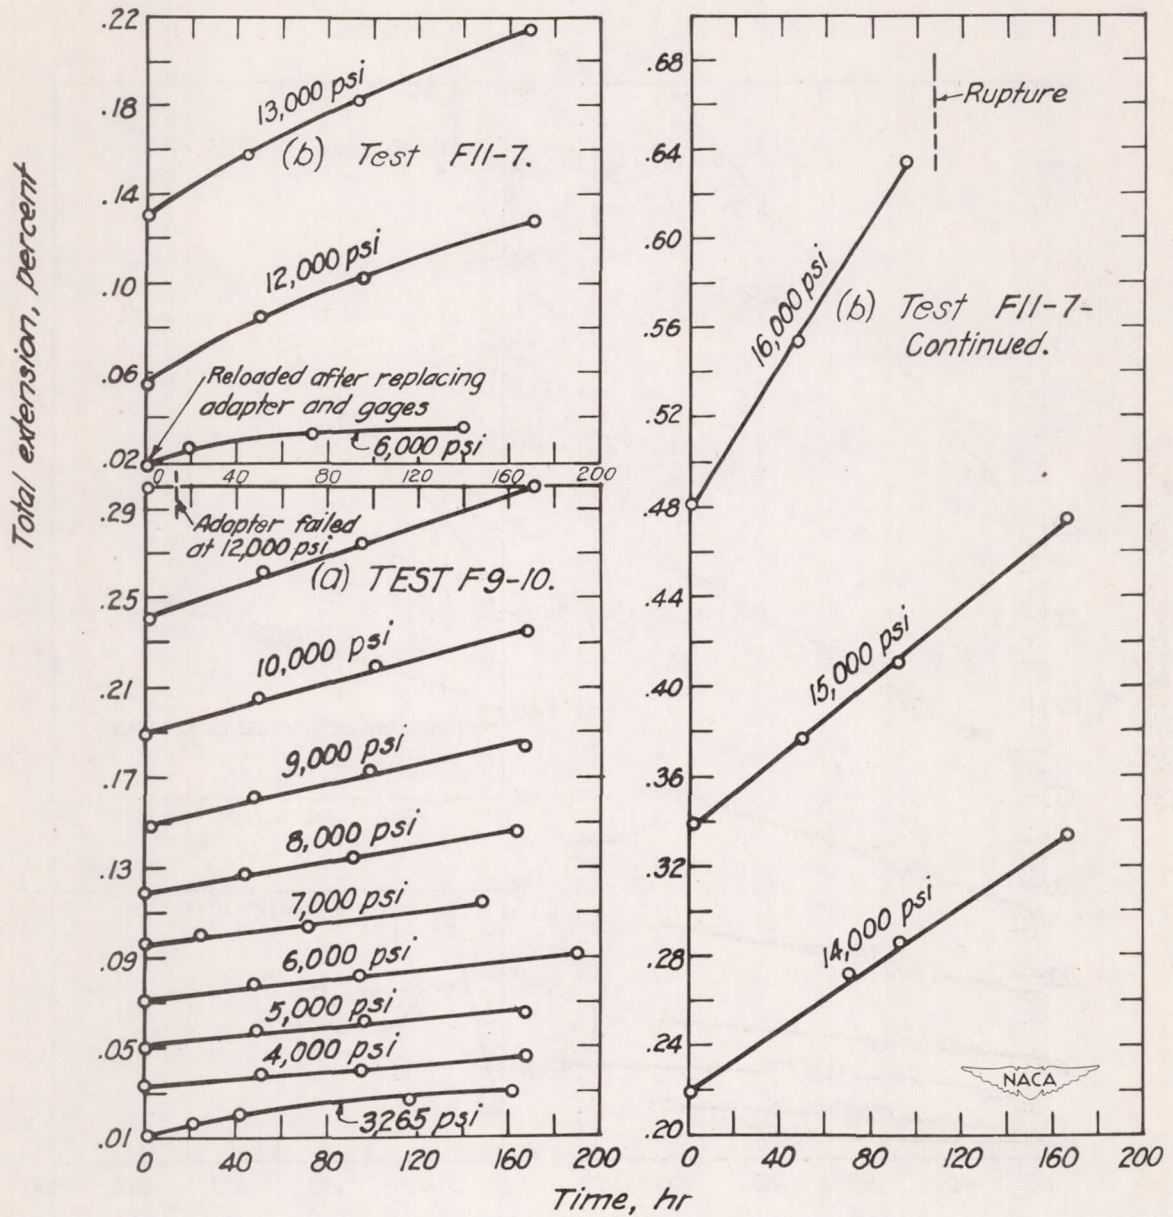 Total extension, percent
.22
.18
.14
.10
.06
.02
13,000 psi
(b) Test F11-7.
12,000 psi
Reloaded after replacing
adapter and gages
6,000 psi
0 40 80 120 160 200
.29
.25
.21
.17
.13
.09
.05
.01
Adapter failed
at 12,000 psi
(a) TEST F9-10.
10,000 psi
9,000 psi
8,000 psi
7,000 psi
6,000 psi
5,000 psi
4,000 psi
3265 psi
0 40 80 120 160 200
.68
.64
.60
.56
.52
.48
.44
.40
.36
.32
.28
.24
.20
Rupture
16,000 psi
(b) Test F11-7-
Continued.
15,000 psi
14,000 psi
NACA
0 40 80 120 160 200
Time, hr